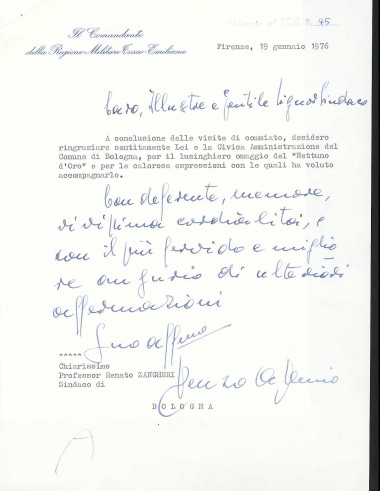 Il Comandante
della Regione Militare Tosco-Emiliana
45
Firenze, 19 gennaio 1976
Caro, Illustre e Gentile Signor Sindaco
A conclusione delle visite di commiato, desidero
ringraziare sentitamente Lei e la Civica Amministrazione del
Comune di Bologna, per il lusinghiero omaggio del "Nettuno
d'Oro" e per le calorose espressioni con le quali ha voluto
accompagnarlo.
Con deferente, memore,
vivissima cordialità, e
con il più fervido e miglio
re augurio di ulteriori
affermazioni
Suo aff.mo
^^^^^
Chiarissimo
Professor Renato ZANGHERI
Sindaco di
BOLOGNA